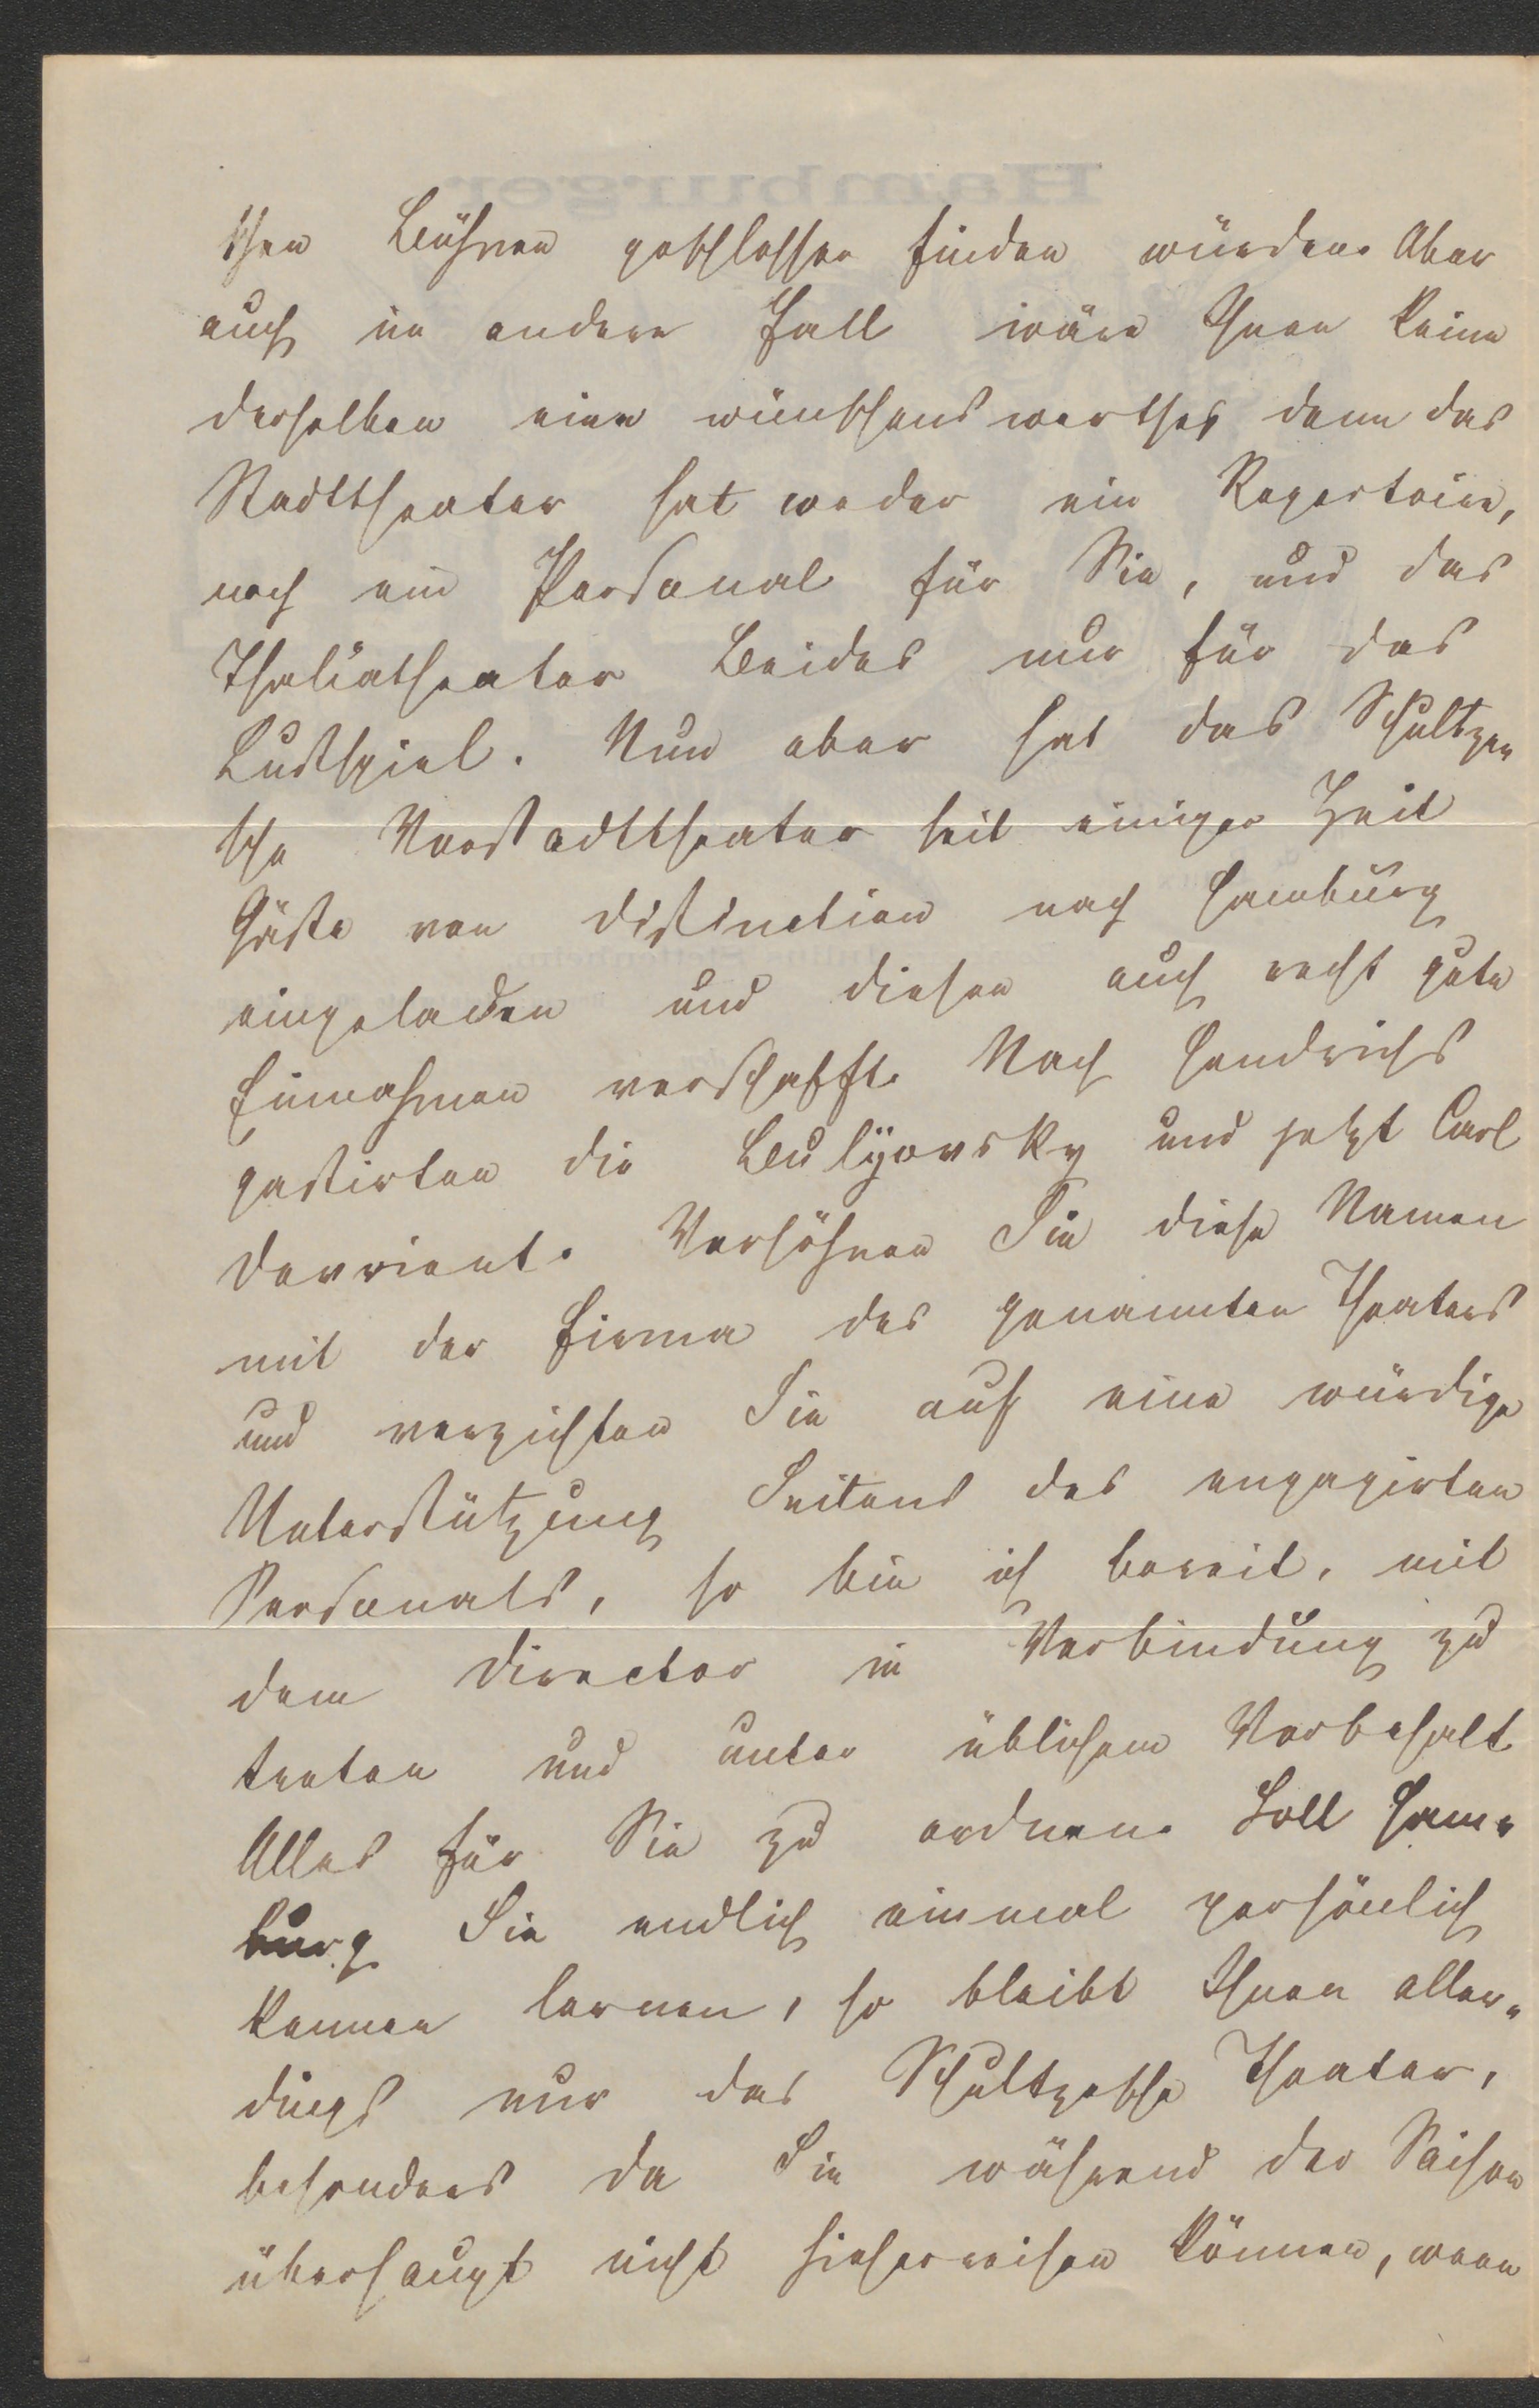 schen Bühnen geschlossen finden würden. Aber
auch im andern Fall wäre Ihnen keine
derselben eine wünschenswerthe, denn das
Stadttheater hat weder ein Repertoire,
noch ein Personal für Sie, und das
Thaliatheater Beides nur für das
Lustspiel. Nun aber hat das Schultze„
sche Vorstadttheater seit einiger Zeit
Gäste von Distinction nach Hamburg
eingeladen und diesen auch recht gute
Einnahmen verschafft. Nach Hendrichs
gastirten die Bulyovsky und jetzt Carl
Devrient. Versöhnen Sie diese Namen
mit der Firma des genannten Theaters
und verzichten Sie auf eine würdige
Unterstützung Seitens des engagirten
Personals, so bin ich bereit, mit
dem Director in Verbindung zu
treten und unter üblichem Vorbehalt
Alles für Sie zu ordnen. Soll Ham„
burg Sie endlich einmal persönlich
kennen lernen, so bleibt Ihnen aller„
dings nur das Schultzesche Theater,
besonders da Sie während der Saison
überhaupt nicht hieherreisen können, wenn